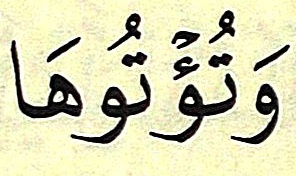 وَتُؤۡتُوهَا